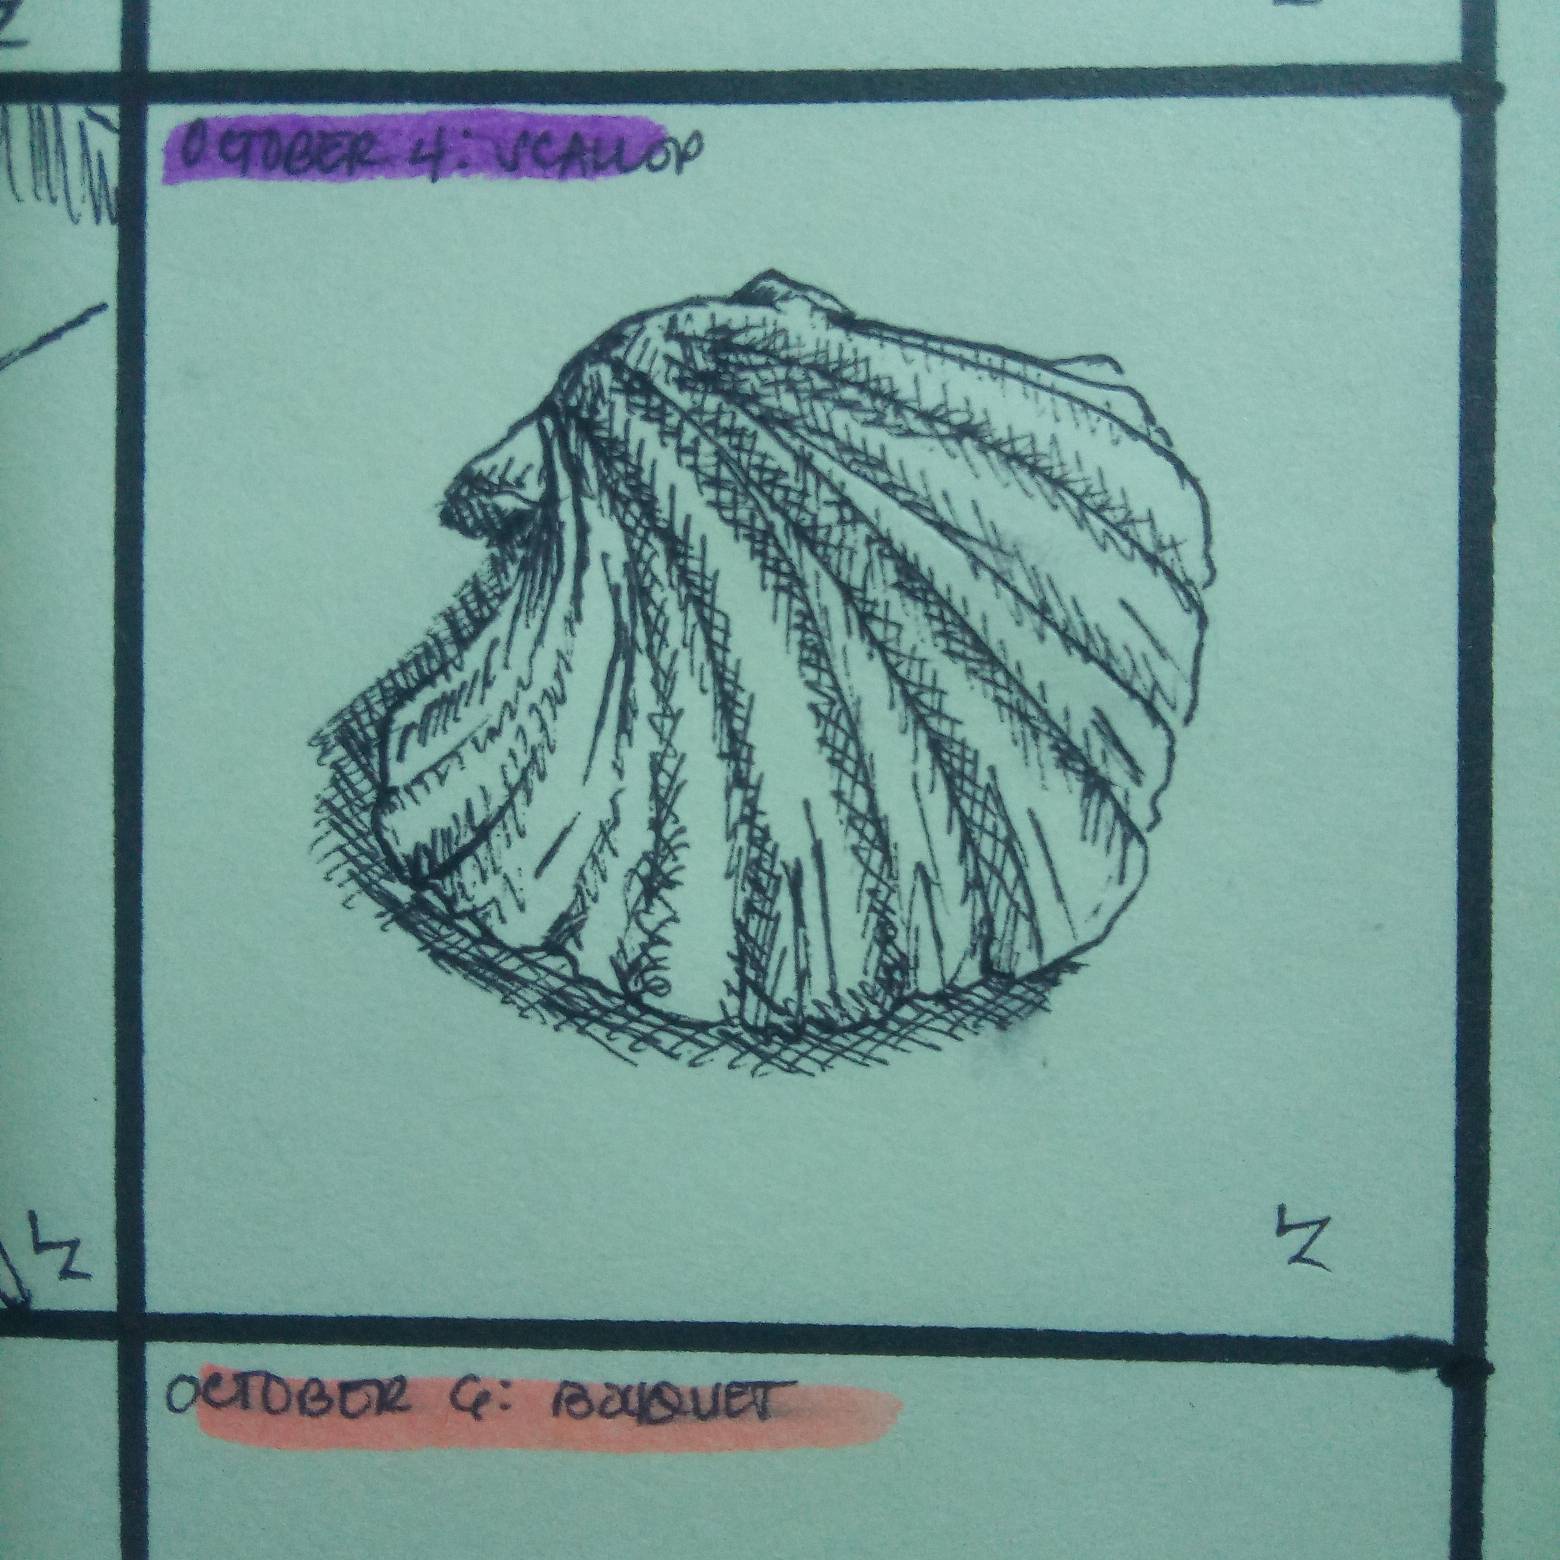 OCTOBER 4: SCALLOP
OCTOBER 6: BOUQUET